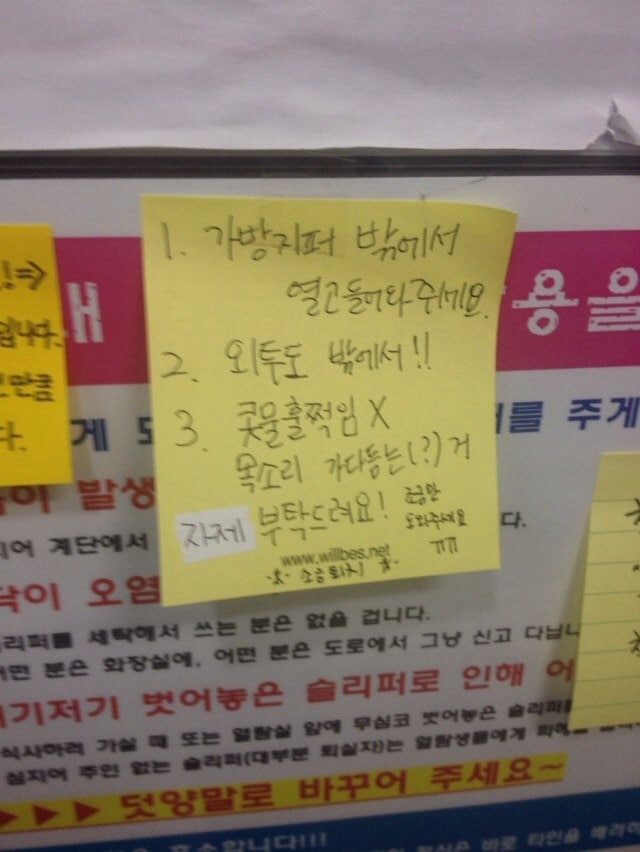 1. 가방지퍼 밖에서
열고들어와주세요.
2. 외투도 밖에서!!
3. 콧물훌쩍임 X
목소리 가다듬는(?)거
자제 부탁드려요!
조금만
도와주세요
ㅠㅠ
www.willbes.net
소음퇴치
!⇒
입니다.
만큼
다.
용을
게
를 주게
이 발생
계단에서
다.
이 오염
리퍼를 세탁해서 쓰는 분은 없을 겁니다.
어떤 분은 화장실에, 어떤 분은 도로에서 그냥 신고 다닙니
여기저기 벗어놓은 슬리퍼로 인해 어
식사하러 가실 때 또는 열람실 앞에 무심코 벗어놓은 슬리퍼
심지어 주인 없는 슬리퍼(대부분 퇴실자)는 열람생들에게 피해
▶▶▶ 덧양말로 바꾸어 주세요~
합니다!!!
바로 타인을 배려하